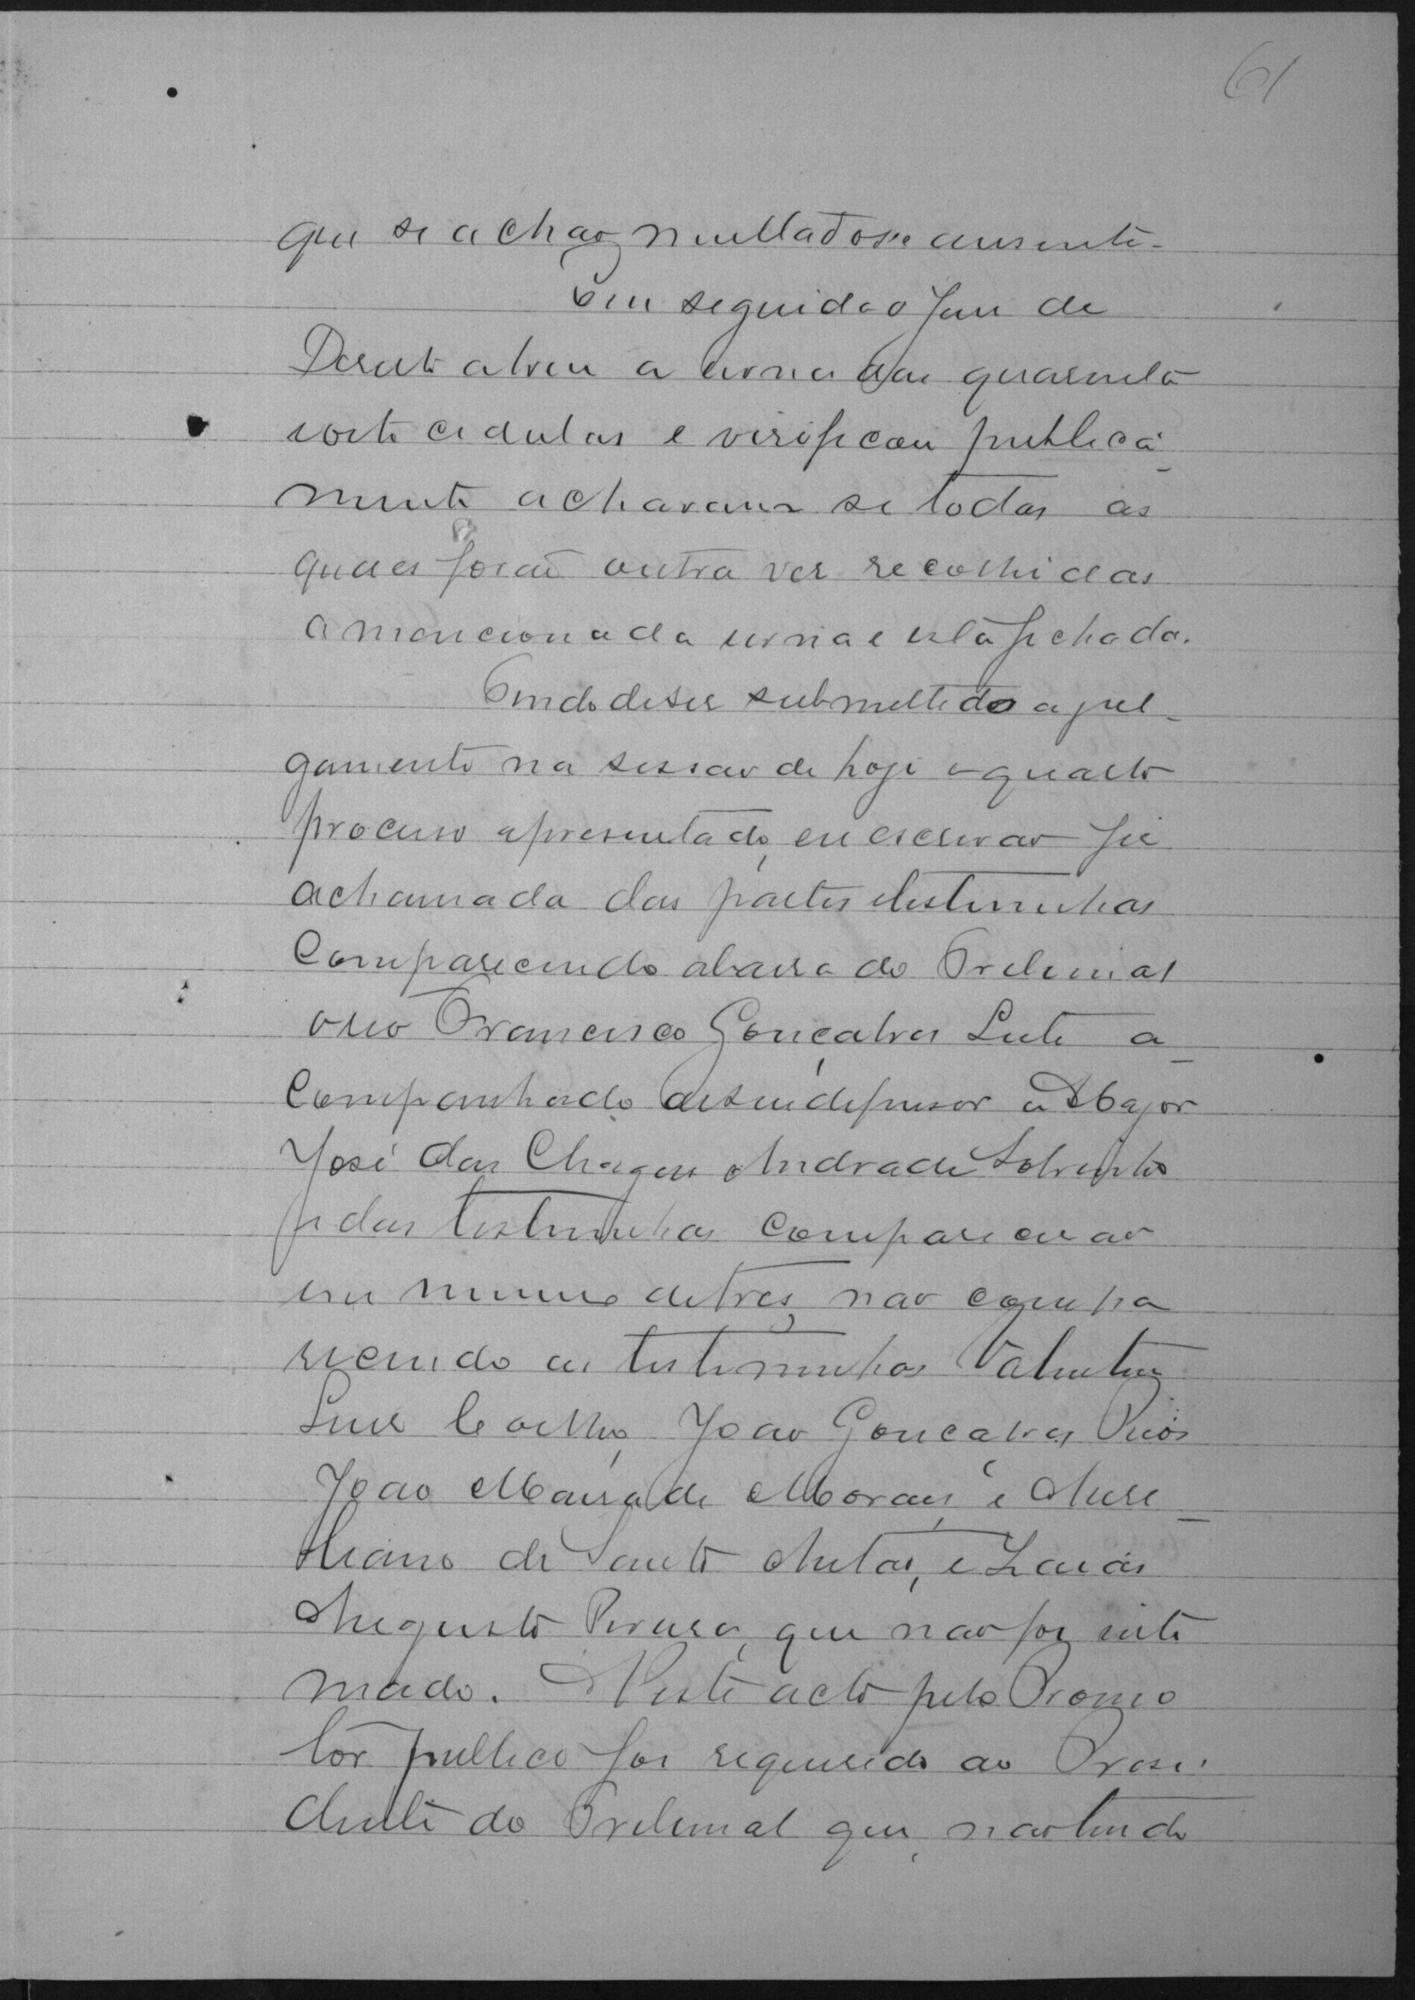 61
que se achão multados e ausente.
Em seguida o Juiz de
Direito abriu a urna das quarenta
oito cedulas e verificou publica
mente acharam se todas as
quaes forão outra vez recolhidas
a mencionada urna e esta fechada.
Tendo de ser submettido a jul-
gamento na sessão de hoje o quarto
processo apresentado, eu escrivão fiz
a chamada das partes e testemunhas
Comparecendo a barra do Tribunal
o reo Francisco Gonçalves Leite a-
companhado de seu defensor o Major
José das Chagas Andrade Sobrinho
e das testemunhas comparecerão
em numero de tres, não compa
recendo as testemunhas Valentim
Luiz Coelho, João Gonçalves
João Maria de Moraes, e Aure-
liano de Santo Antão, e Izaias
Augusto Pereira, que não foi inti
mado. Neste acto pelo Promo
tor publico foi requerido ao Presi
dente do Tribunal que, não tendo